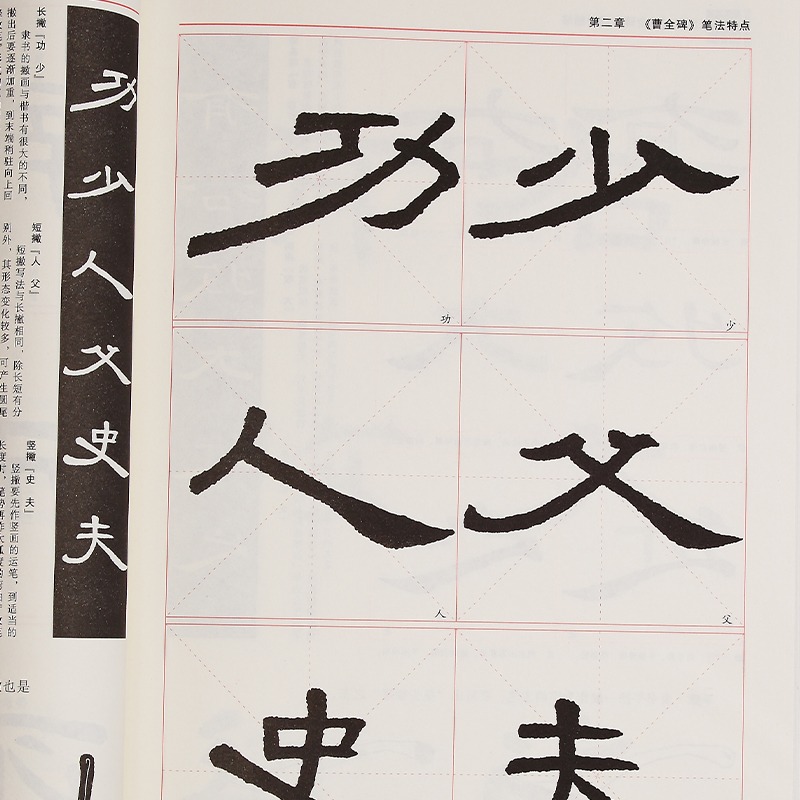 第二章 《曹全碑》笔法特点
功 少
功 少
人 父
人 父
史 夫
功
少
人
父
史
夫
长撇「功 少」
隶书的撇画与楷书有很大的不同，
撇出后要逐渐加重，到末端稍驻向上回
短撇「人 父」
短撇写法与长撇相同，除长短有分
别外，其形态变化较多，可产生
竖撇「史 夫」
竖撇要先作竖画的运笔，到适当的
也是